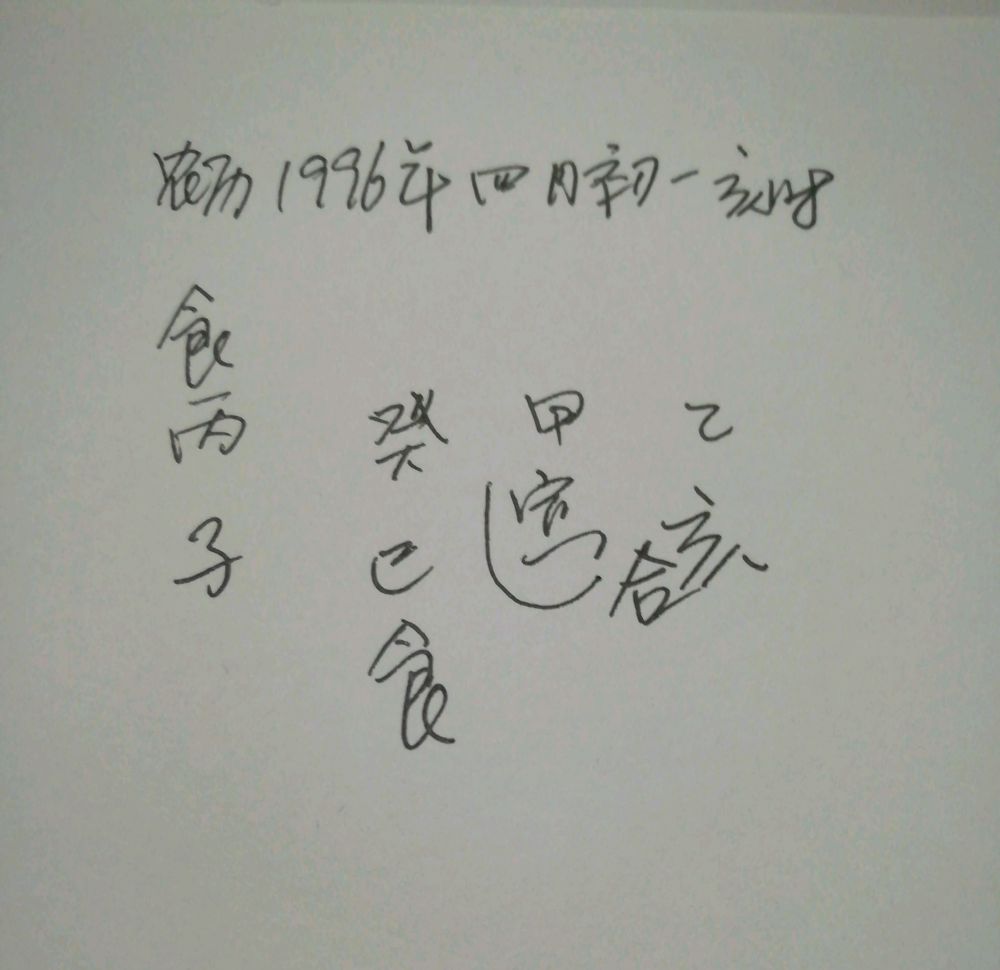 农历1996年四月初一亥时
食
丙 癸 甲 乙
子 巳 寅 合 亥
食